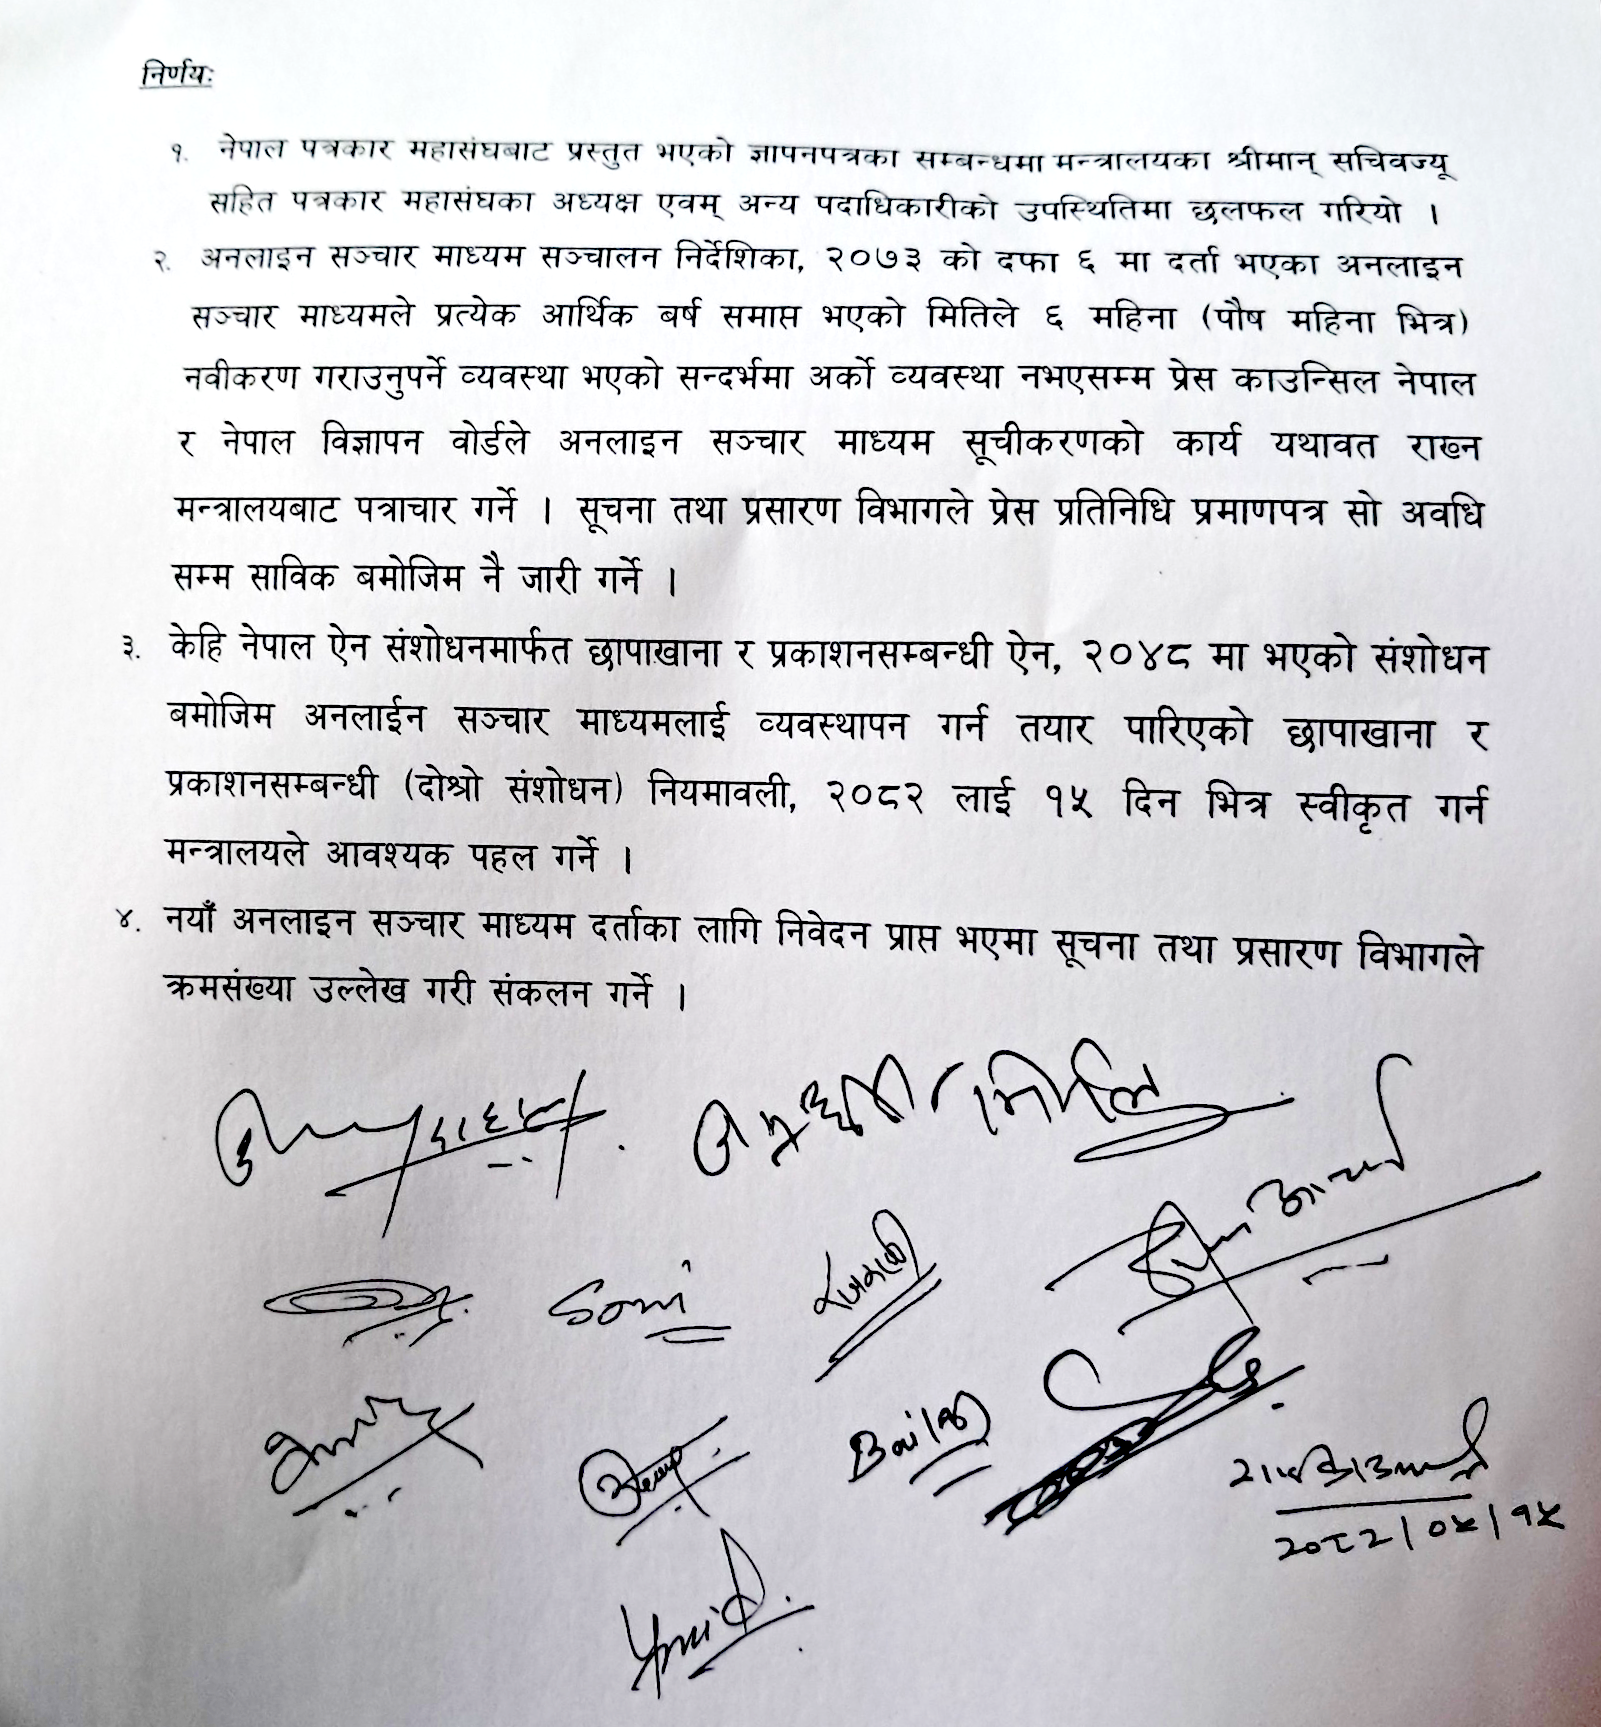 निर्णय:
१. नेपाल पत्रकार महासंघबाट प्रस्तुत भएको ज्ञापनपत्रका सम्बन्धमा मन्त्रालयका श्रीमान् सचिवज्यू
सहित पत्रकार महासंघका अध्यक्ष एवम् अन्य पदाधिकारीको उपस्थितिमा छलफल गरियो ।
२. अनलाइन सञ्चार माध्यम सञ्चालन निर्देशिका, २०७३ को दफा ६ मा दर्ता भएका अनलाइन
सञ्चार माध्यमले प्रत्येक आर्थिक बर्ष समाप्त भएको मितिले ६ महिना (पौष महिना भित्र)
नवीकरण गराउनुपर्ने व्यवस्था भएको सन्दर्भमा अर्को व्यवस्था नभएसम्म प्रेस काउन्सिल नेपाल
र नेपाल विज्ञापन वोर्डले अनलाइन सञ्चार माध्यम सूचीकरणको कार्य यथावत राख्न
मन्त्रालयबाट पत्राचार गर्ने । सूचना तथा प्रसारण विभागले प्रेस प्रतिनिधि प्रमाणपत्र सो अवधि
सम्म साविक बमोजिम नै जारी गर्ने ।
३. केहि नेपाल ऐन संशोधनमार्फत छापाखाना र प्रकाशनसम्बन्धी ऐन, २०४८ मा भएको संशोधन
बमोजिम अनलाईन सञ्चार माध्यमलाई व्यवस्थापन गर्न तयार पारिएको छापाखाना र
प्रकाशनसम्बन्धी (दोश्रो संशोधन) नियमावली, २०८२ लाई १५ दिन भित्र स्वीकृत गर्न
मन्त्रालयले आवश्यक पहल गर्ने ।
४. नयाँ अनलाइन सञ्चार माध्यम दर्ताका लागि निवेदन प्राप्त भएमा सूचना तथा प्रसारण विभागले
क्रमसंख्या उल्लेख गरी संकलन गर्ने ।
२०८२/०५/१५